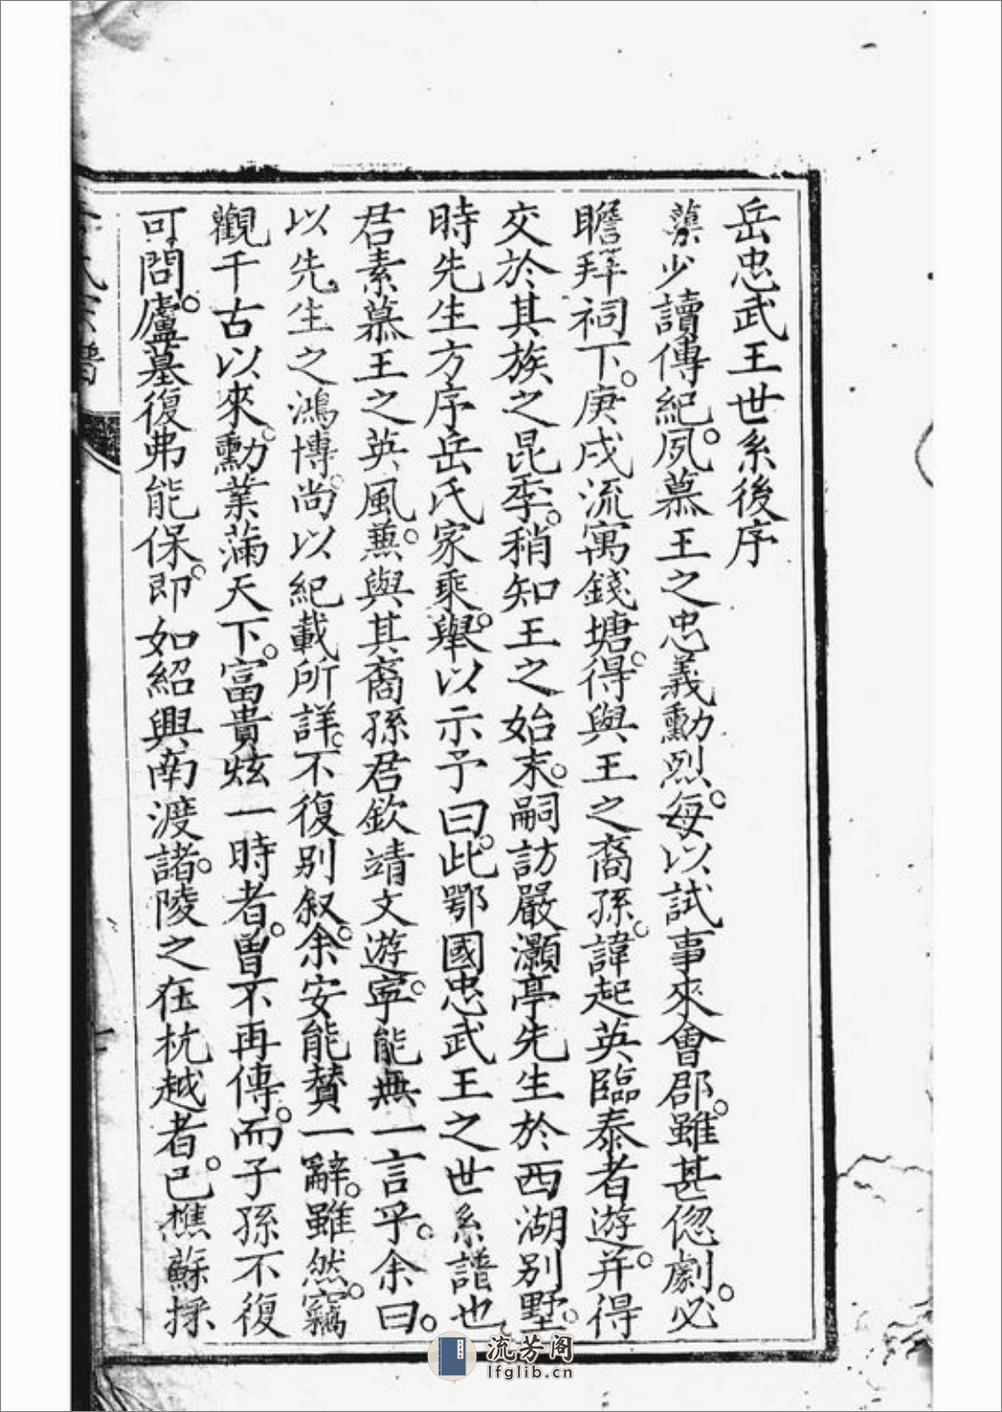 岳忠武王世系後序
藻少讀傳紀。夙慕王之忠義勳烈。每以試事來會郡。雖甚偬劇。必
瞻拜祠下。庚戌流寓錢塘。得與王之裔孫。諱起英臨泰者遊。并得
交於其族之昆季。稍知王之始末。嗣訪嚴灝亭先生於西湖别墅。
時先生方序岳氏家乘。舉以示予曰。此鄂國忠武王之世系譜也
君素慕王之英風。蕪與其裔孫君欽靖文遊。寧能無一言乎。余曰。
以先生之鴻博。尚以紀載所詳。不復别叙。余安能賛一辭。雖然。竊
觀千古以來。勳業滿天下。富貴炫一時者。曾不再傳。而子孫不復
可問。廬墓復弗能保。即如紹興南渡諸。陵之在杭越者。已樵蘇採
氏宗譜
流芳阁
lfglib.cn